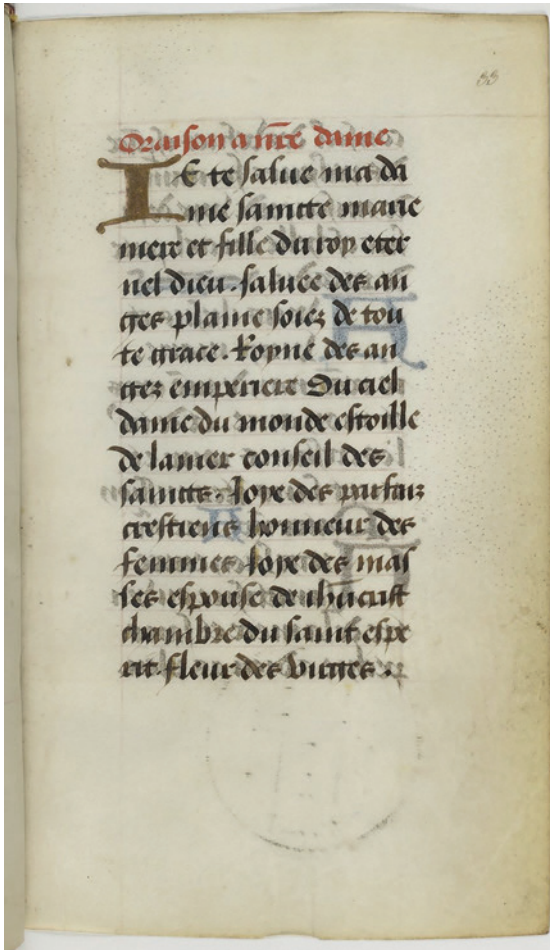 33
Oraison a nr̄e dame
IE te salue ma da
me saincte marie
mere et fille du roy eter
nel dieu. saluee des an
ges plaine soiez de tou
te grace. Royne des an
gez emperiere Du ciel
dame du monde estoille
de la mer conseil des
saincts. Joye des parfaiz
crestiens honneur des
femmes Joye des mas
les espouse de ihūcrist
chambre du saint espe
rit. fleur des virges .